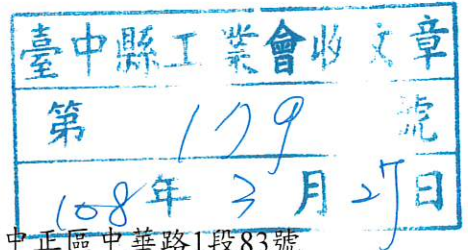 臺中縣工業會收文章
第 179 號
108年 3 月 27日
中正區中華路1段83號